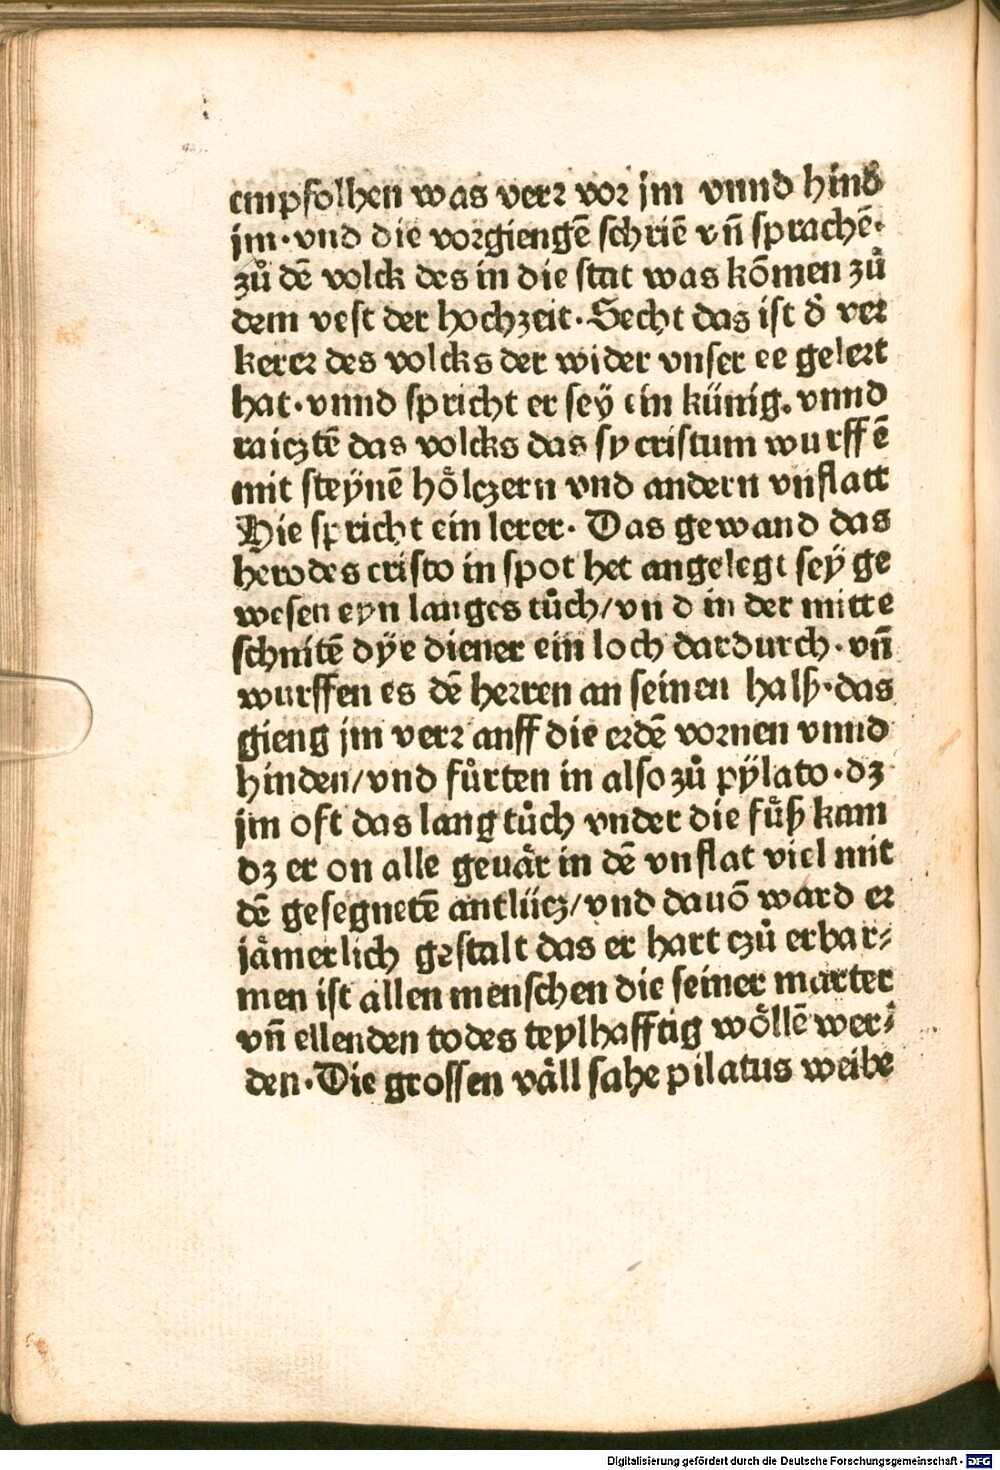 empfolhen was verr vor jm vnnd hind᷑
jm·vnd die vorgiengē schriē vn̄ sprachē·
zů dē volck des in die stat was kōmen zů
dem vest der hochzeit·Secht das ist d᷑ ver
kerer des volcks der wider vnser ee gelert
hat·vnnd spricht er sey̋ ein künig.vnnd
raicztē das volcks das sy cristum wurffē
mit stey̋nē hoͤlczern vnd andern vnflatt
Hie spricht ein lerer·Das gewand das
herodes cristo in spot het angelegt sey̋ ge
wesen eyn langes tůch/vnd in der mitte
schnitē dy̋e diener ein loch dardurch·vn̄
wurffen es dē herren an seinen halß·das
gieng jm verr anff die erdē vornen vnnd
hinden/vnd fůrten in also zů py̋lato·dz
jm oft das lang tůch vnder die fuͤß kam
dz er on alle geuaͤr in dē vnflat viel mit
dē gesegnetē antlücz/vnd dauō ward er
jaͤmerlich gestalt das er hart czů erbar⸗
men ist allen menschen die seiner marter
vn̄ ellenden todes teylhafftig woͤllē wer⸗
den·Die grossen vaͤll sahe pilatus weibe
Digitalisierung gefördert durch die Deutsche Forschungsgemeinschaft - DFG